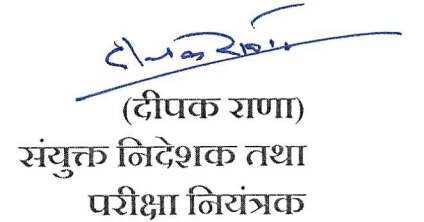 दीपक राणा
(दीपक राणा)
संयुक्त निदेशक तथा
परीक्षा नियंत्रक